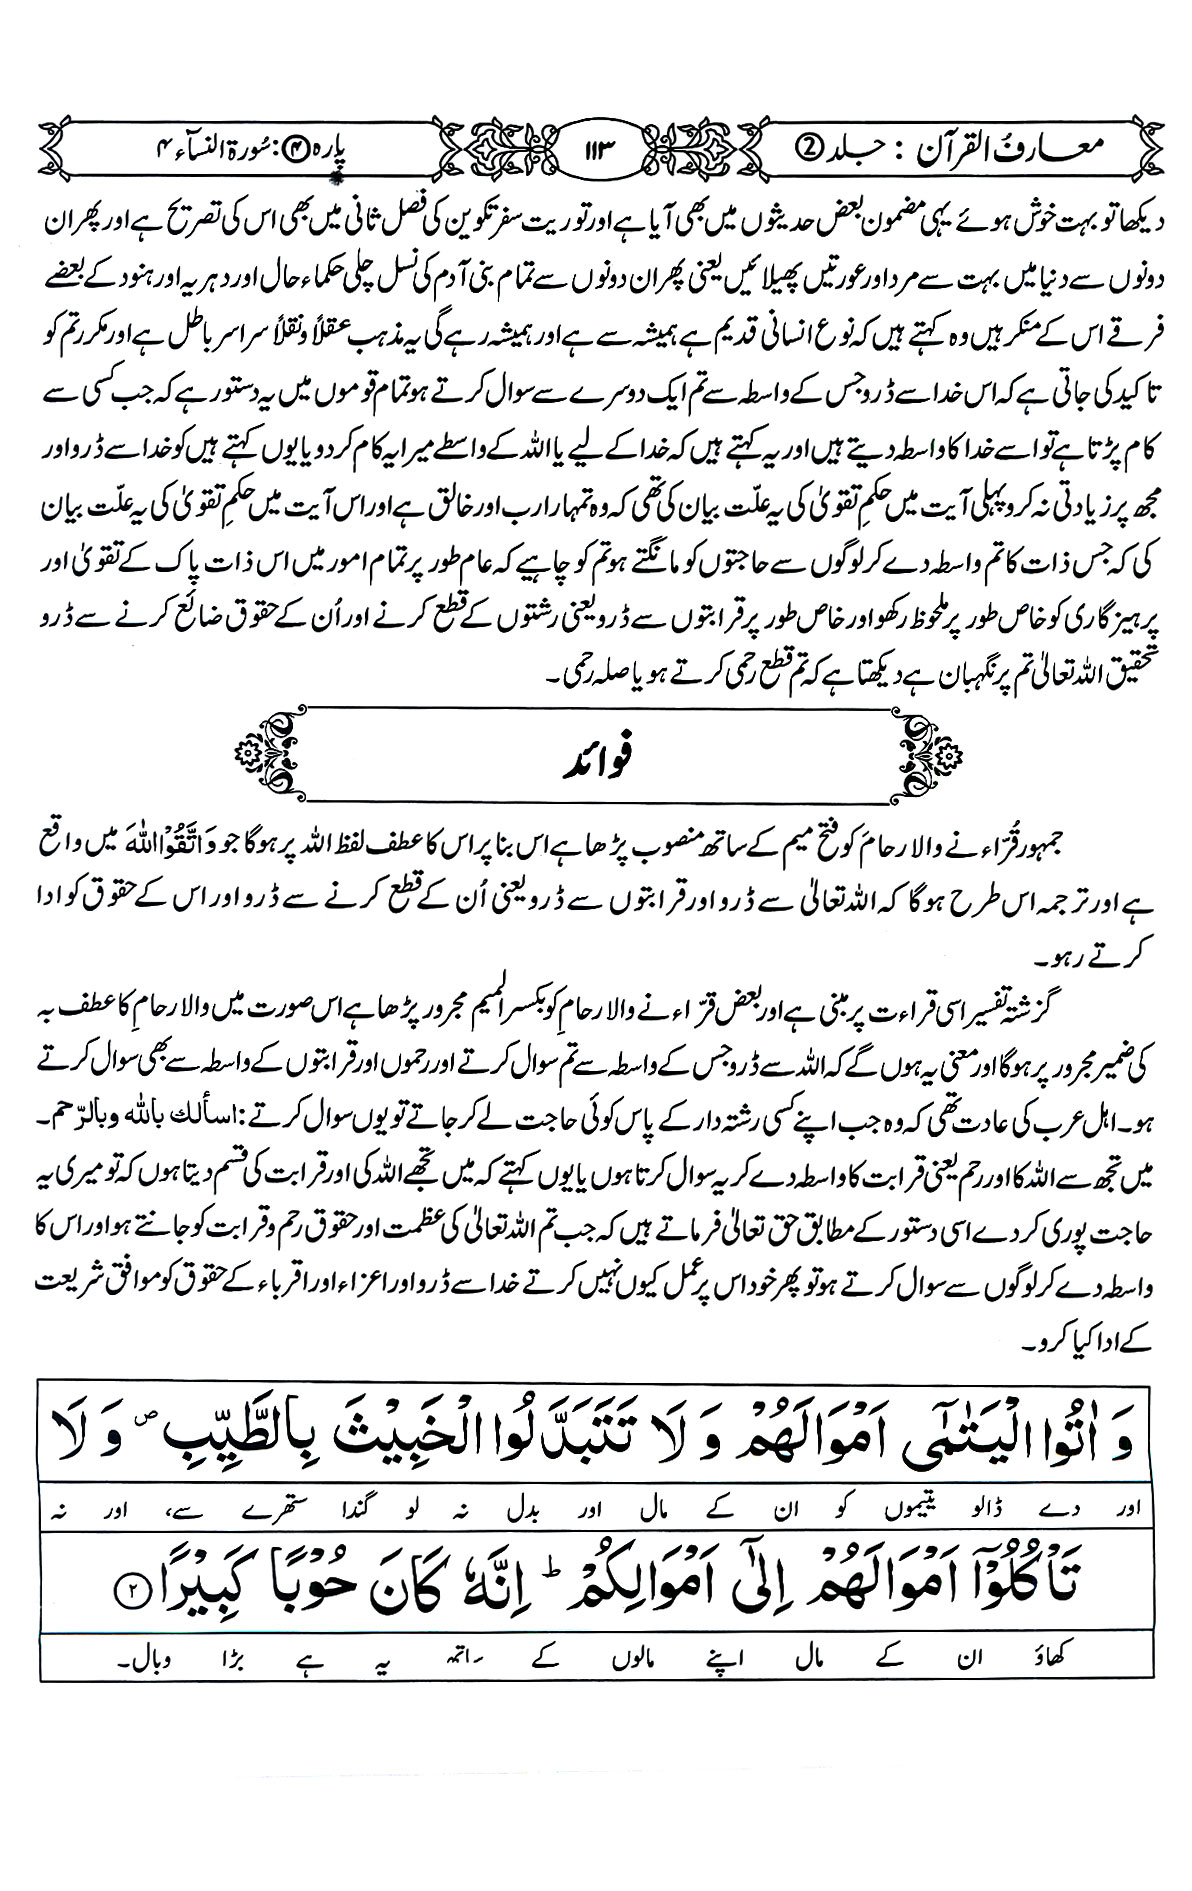 معارفُ القرآن : جلد ② ۱۱۳ پارہ ④: سُورۃ النسآء ۴
دیکھا تو بہت خوش ہوئے یہی مضمون بعض حدیثوں میں بھی آیا ہے اور توریت سفر تکوین کی فصل ثانی میں بھی اس کی تصریح ہے اور پھر ان
دونوں سے دنیا میں بہت سے مرد اور عورتیں پھیلائیں یعنی پھر ان دونوں سے تمام بنی آدم کی نسل چلی حکماء حال اور دہریہ اور ہنود کے بعضے
فرقے اس کے منکر ہیں وہ کہتے ہیں کہ نوع انسانی قدیم ہے ہمیشہ سے ہے اور ہمیشہ رہے گی یہ مذہب عقلاً ونقلاً سراسر باطل ہے اور مکرر تم کو
تاکید کی جاتی ہے کہ اس خدا سے ڈرو جس کے واسطہ سے تم ایک دوسرے سے سوال کرتے ہو تمام قوموں میں یہ دستور ہے کہ جب کسی سے
کام پڑتا ہے تو اسے خدا کا واسطہ دیتے ہیں اور یہ کہتے ہیں کہ خدا کے لیے یا اللہ کے واسطے میرا یہ کام کردو یا یوں کہتے ہیں کو خدا سے ڈرو اور
مجھ پر زیادتی نہ کرو پہلی آیت میں حکمِ تقویٰ کی یہ علّت بیان کی تھی کہ وہ تمہارا رب اور خالق ہے اور اس آیت میں حکمِ تقویٰ کی یہ علّت بیان
کی کہ جس ذات کا تم واسطہ دے کر لوگوں سے حاجتوں کو مانگتے ہو تم کو چاہیے کہ عام طور پر تمام امور میں اس ذات پاک کے تقویٰ اور
پرہیزگاری کو خاص طور پر ملحوظ رکھو اور خاص طور پر قرابتوں سے ڈرو یعنی رشتوں کے قطع کرنے اور اُن کے حقوق ضائع کرنے سے ڈرو
تحقیق اللہ تعالیٰ تم پر نگہبان ہے دیکھتا ہے کہ تم قطع رحمی کرتے ہو یا صلہ رحمی۔
فوائد
جمہور قُرّاء نے والارحامَ کو فتح میم کے ساتھ منصوب پڑھا ہے اس بنا پر اس کا عطف لفظ اللہ پر ہوگا جو وَاتَّقُوْا اللّٰهَ میں واقع
ہے اور ترجمہ اس طرح ہوگا کہ اللہ تعالیٰ سے ڈرو اور قرابتوں سے ڈرو یعنی اُن کے قطع کرنے سے ڈرو اور اس کے حقوق کو ادا
کرتے رہو۔
گزشتہ تفسیر اسی قراءت پر مبنی ہے اور بعض قرّاء نے والارحامِ کو بکسر المیم مجرور پڑھا ہے اس صورت میں والارحامِ کا عطف بہ
کی ضمیر مجرور پر ہوگا اور معنی یہ ہوں گے کہ اللہ سے ڈرو جس کے واسطہ سے تم سوال کرتے اور رحموں اور قرابتوں کے واسطہ سے بھی سوال کرتے
ہو۔ اہل عرب کی عادت تھی کہ وہ جب اپنے کسی رشتہ دار کے پاس کوئی حاجت لے کر جاتے تو یوں سوال کرتے: اسألك بالله وبالرّحم۔
میں تجھ سے اللہ کا اور رحم یعنی قرابت کا واسطہ دے کر یہ سوال کرتا ہوں یا یوں کہتے کہ میں تجھے اللہ کی اور قرابت کی قسم دیتا ہوں کہ تو میری یہ
حاجت پوری کردے اسی دستور کے مطابق حق تعالیٰ فرماتے ہیں کہ جب تم اللہ تعالیٰ کی عظمت اور حقوق رحم و قرابت کو جانتے ہو اور اس کا
واسطہ دے کر لوگوں سے سوال کرتے ہو تو پھر خود اس پر عمل کیوں نہیں کرتے خدا سے ڈرو اور اعزاء اور اقرباء کے حقوق کو موافق شریعت
کے ادا کیا کرو۔
وَ اٰتُوا الْيَتٰمٰٓى اَمْوَالَهُمْ وَ لَا تَتَبَدَّلُوا الْخَبِيْثَ بِالطَّيِّبِ ۪ وَ لَا
اور دے ڈالو یتیموں کو ان کے مال اور بدل نہ لو گندا ستھرے سے، اور نہ
تَاْكُلُوْٓا اَمْوَالَهُمْ اِلٰٓى اَمْوَالِكُمْ ؕ اِنَّهٗ كَانَ حُوْبًا كَبِيْرًا ۝۲
کھاؤ ان کے مال اپنے مالوں کے ساتھ یہ ہے بڑا وبال۔